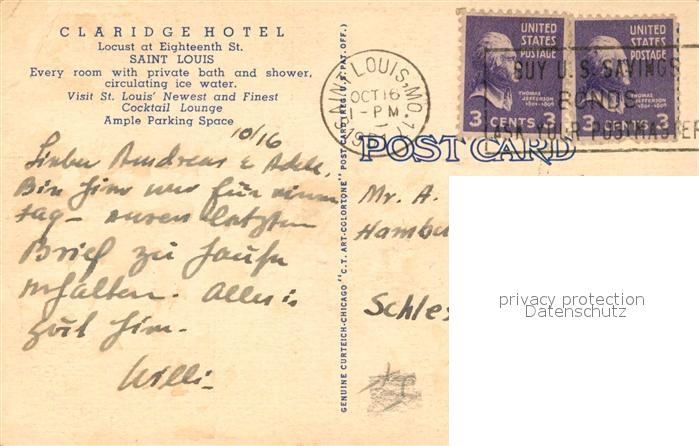 CLARIDGE HOTEL
Locust at Eighteenth St.
SAINT LOUIS
Every room with private bath and shower,
circulating ice water.
Visit St. Louis' Newest and Finest
Cocktail Lounge
Ample Parking Space
10/16
Lieber Andreas & Adele,
Bin hier nur für einen
Tag - euren letzten
Brief zu Hause
erhalten. Alles
gut hier.
Willi
GENUINE CURTEICH-CHICAGO "C.T. ART-COLORTONE" POST CARD (REG. U.S. PAT. OFF.)
SAINT LOUIS, MO.
OCT 16
1-PM
POST CARD
UNITED STATES POSTAGE
THOMAS JEFFERSON
3 CENTS 3
UNITED STATES POSTAGE
THOMAS JEFFERSON
3 CENTS 3
BUY U.S. SAVINGS
BONDS
ASK YOUR POSTMASTER
Mr. A.
Hambu
Schles
privacy protection
Datenschutz